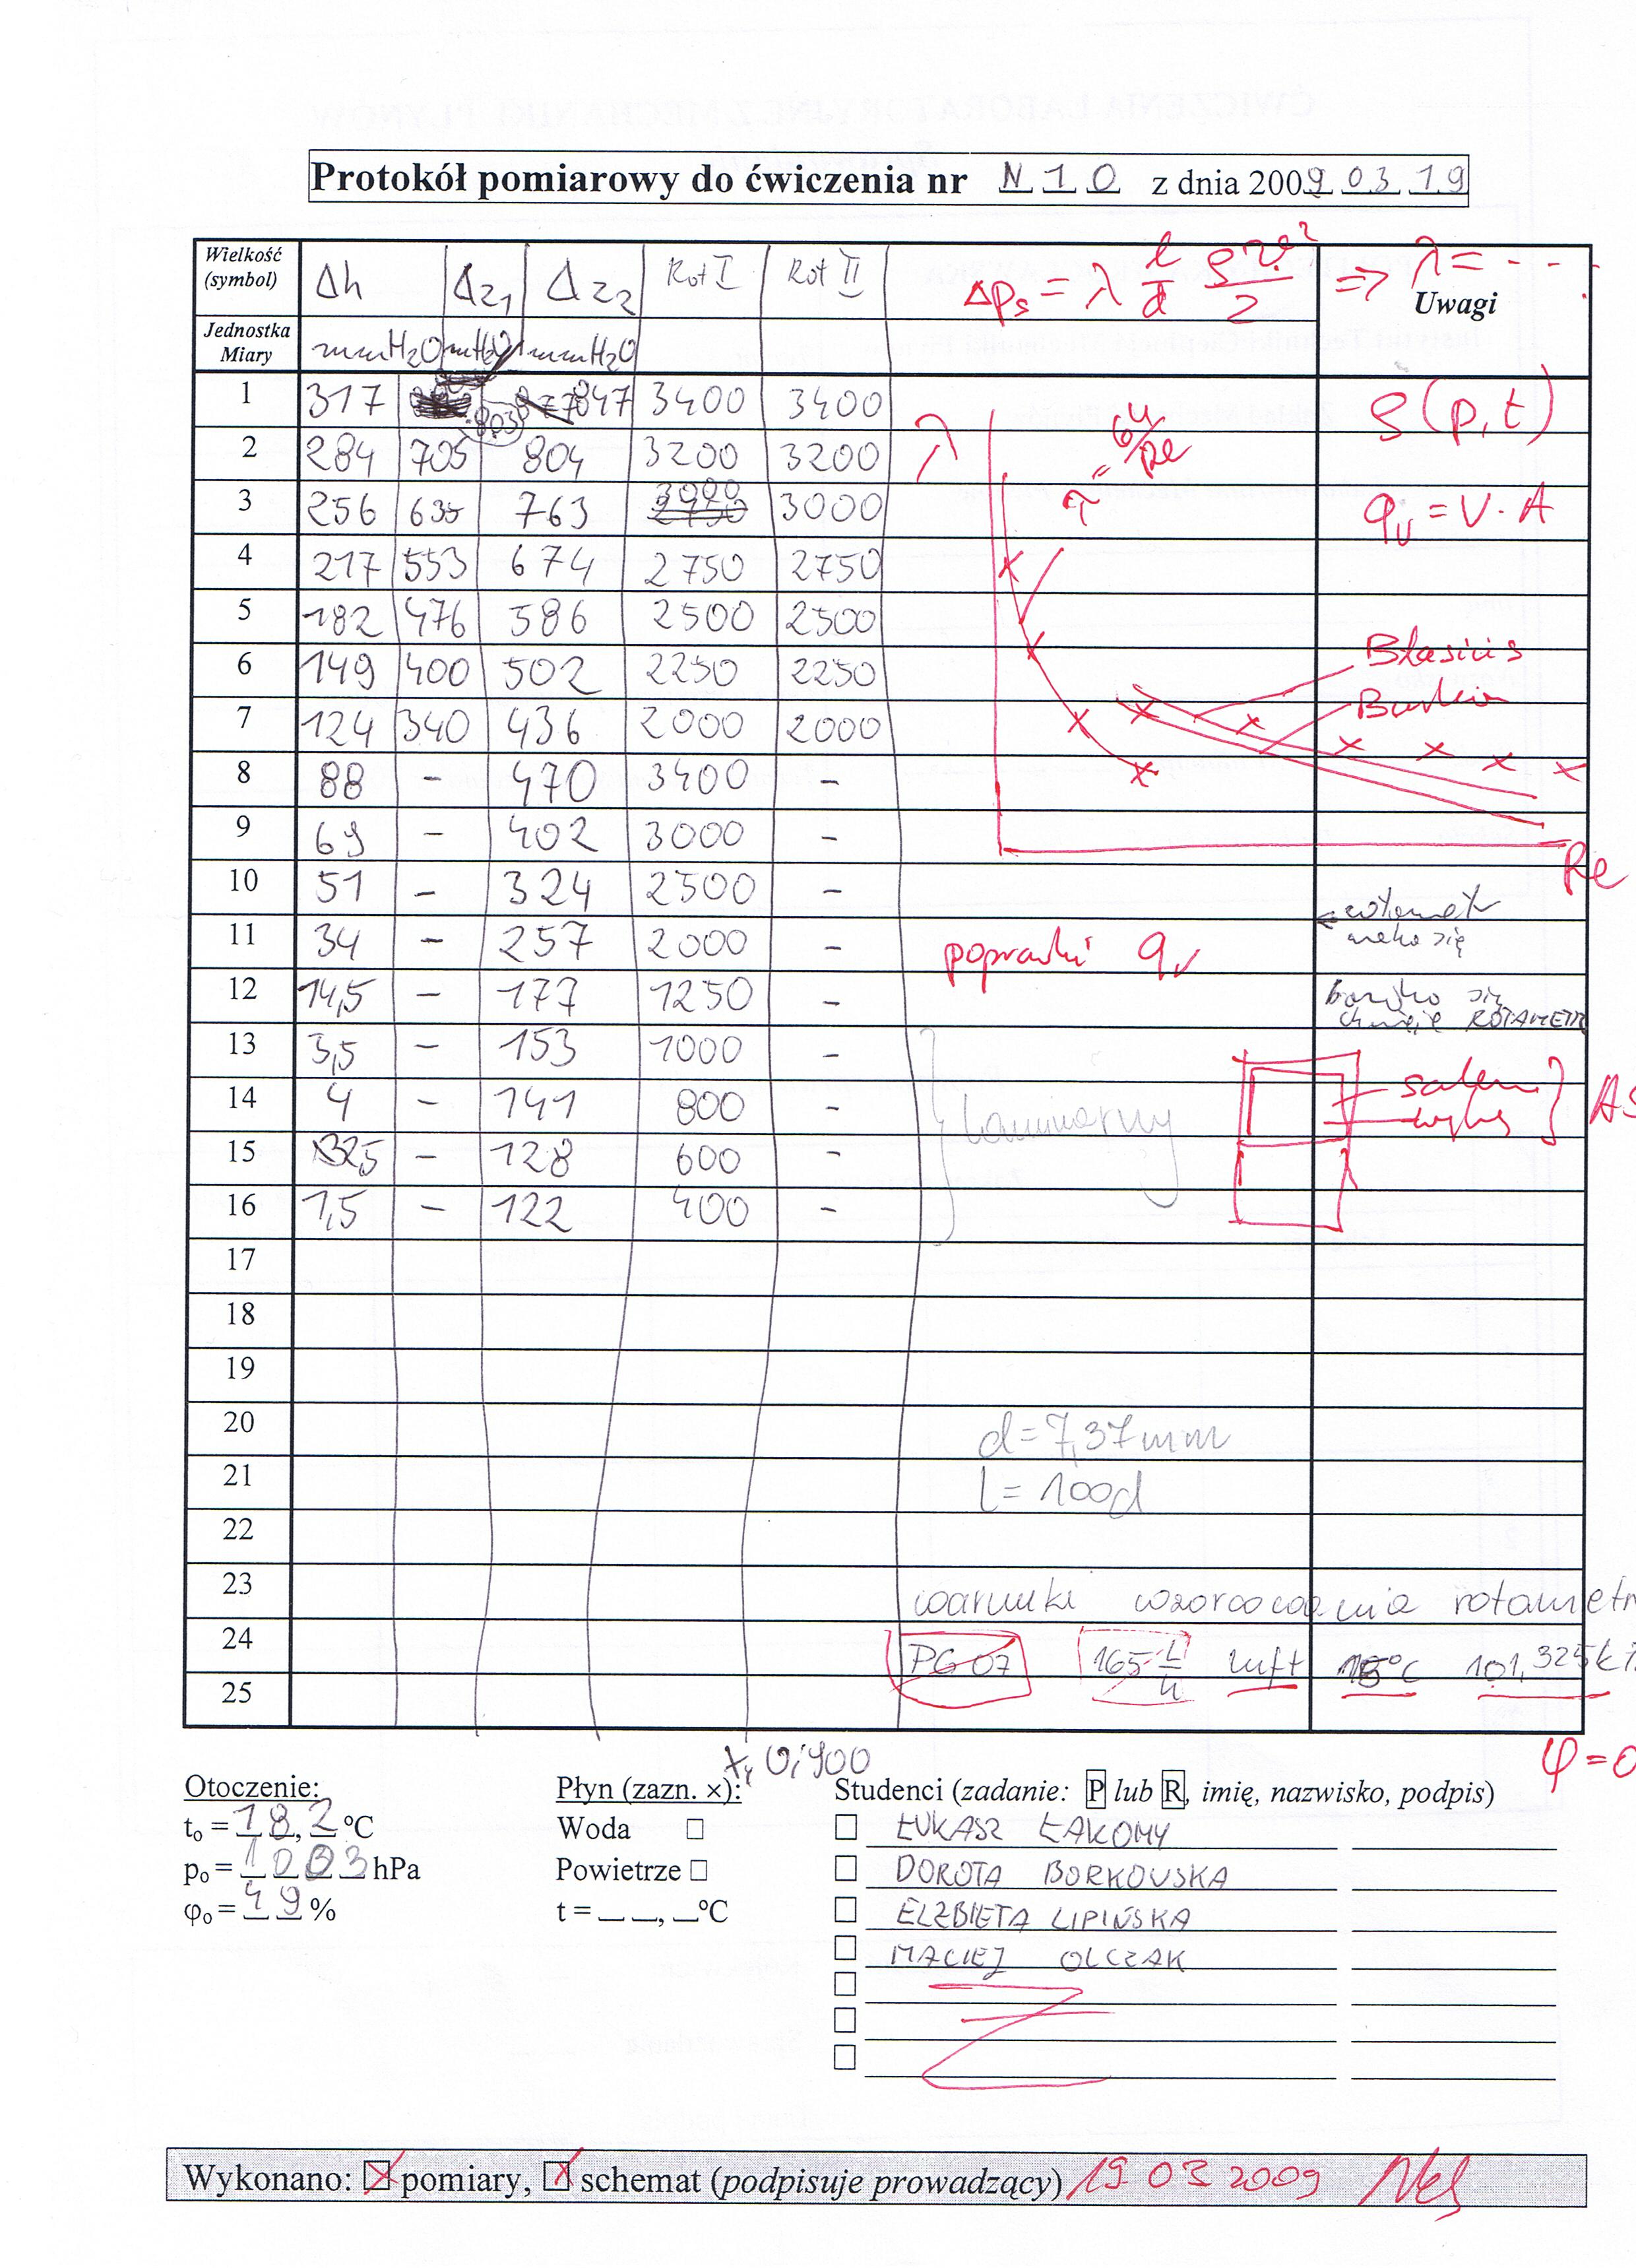 Protokół pomiarowy do ćwiczenia nr N 1 0 z dnia 2009 03 19
Wielkość (symbol) Δh Δz₁ Δz₂ Rot I Rot II Δps = λ l/d ρv²/2 => λ = - - -
Uwagi
Jednostka Miary mmH₂O mmH₂O mmH₂O
1 317 803 847 3400 3400 ρ(p,t)
2 284 705 804 3200 3200 λ 64/Re
3 256 635 763 3000 3000 qv = V·A
4 217 553 674 2750 2750
5 182 476 586 2500 2500
6 149 400 502 2250 2250 Blasius
7 124 340 436 2000 2000
8 88 - 470 3400 -
9 69 - 402 3000 - Re
10 51 - 324 2500 -
11 34 - 257 2000 - poprawki qv
12 14,5 - 177 1250 - bardzo się
ROTAMETR
13 3,5 - 153 1000 -
14 4 - 141 800 - laminarny
15 2,5 - 128 600 -
16 1,5 - 122 400 -
17
18
19
20 d = 7,37mm
21 l = 100d
22
23 warunki wzorcowania rotametr
24 PG 07 165 L/h luft 101,325k
25
φ=0
Otoczenie: Płyn (zazn. ×): Studenci (zadanie: P lub R, imię, nazwisko, podpis)
t₀ = 18,2 °C Woda ŁUKASZ ŁAKOMY
p₀ = 1003 hPa Powietrze DOROTA BORKOWSKA
φ₀ = 49 % t = _ _, _°C ELŻBIETA LIPIŃSKA
MACIEJ OLCZAK
Wykonano: pomiary, schemat (podpisuje prowadzący) 19 03 2009